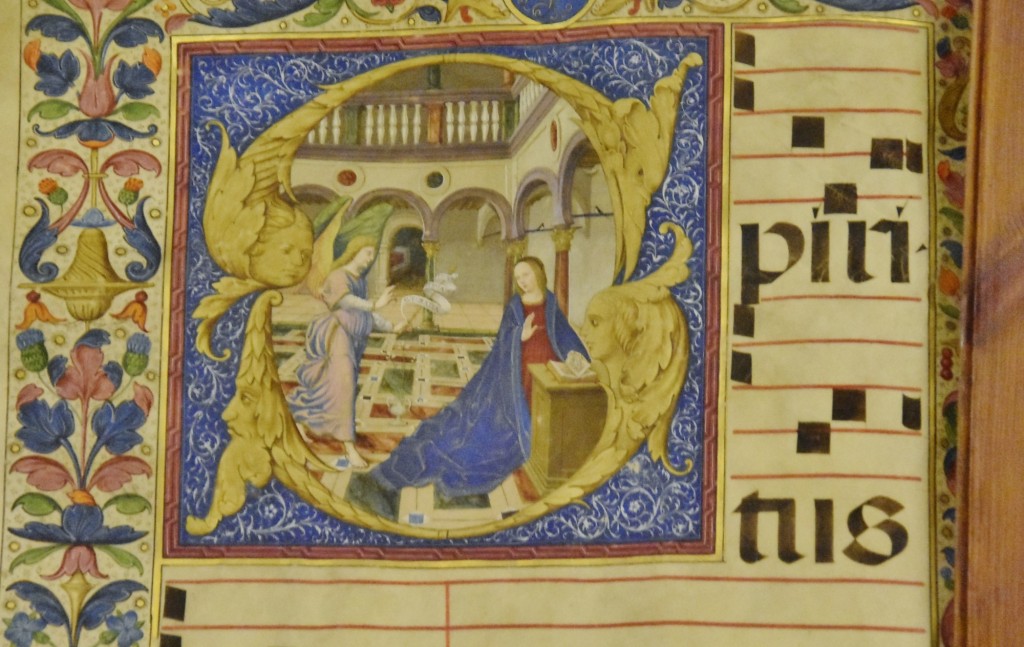 Spiri-
tus